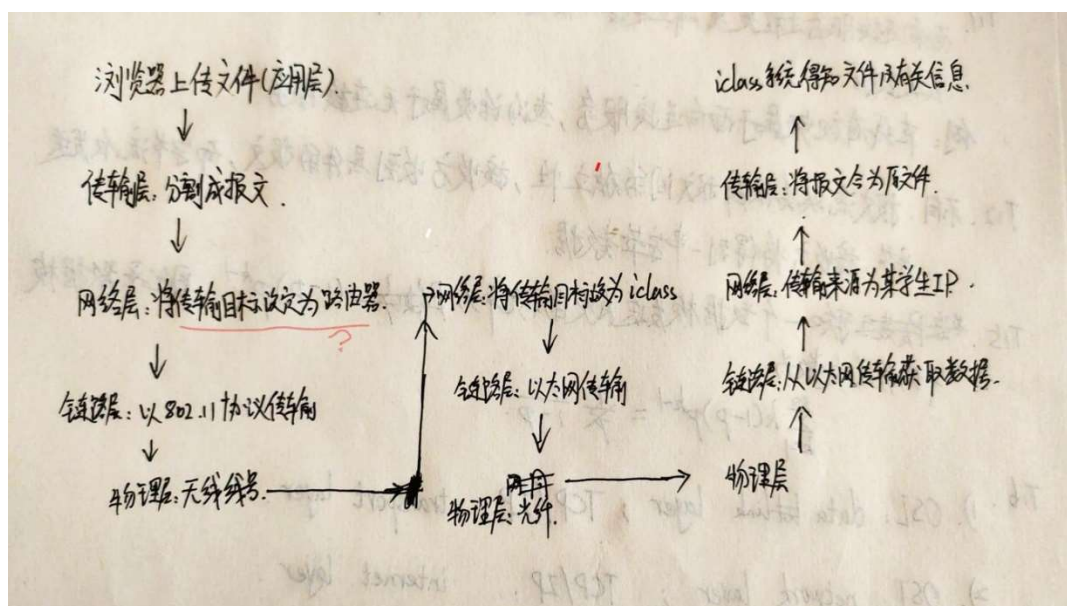 浏览器上传文件(应用层).
传输层: 分割成报文.
网络层: 将传输目标设定为路由器.
?
链路层: 以802.11协议传输
物理层: 无线线号.
网络层: 将传输目标设为iclass
链路层: 以太网传输
物理层: 光纤.
iclass系统得知文件及有关信息.
传输层: 将报文合为原文件.
网络层: 传输来源为某学生IP.
链路层: 从以太网传输获取数据.
物理层